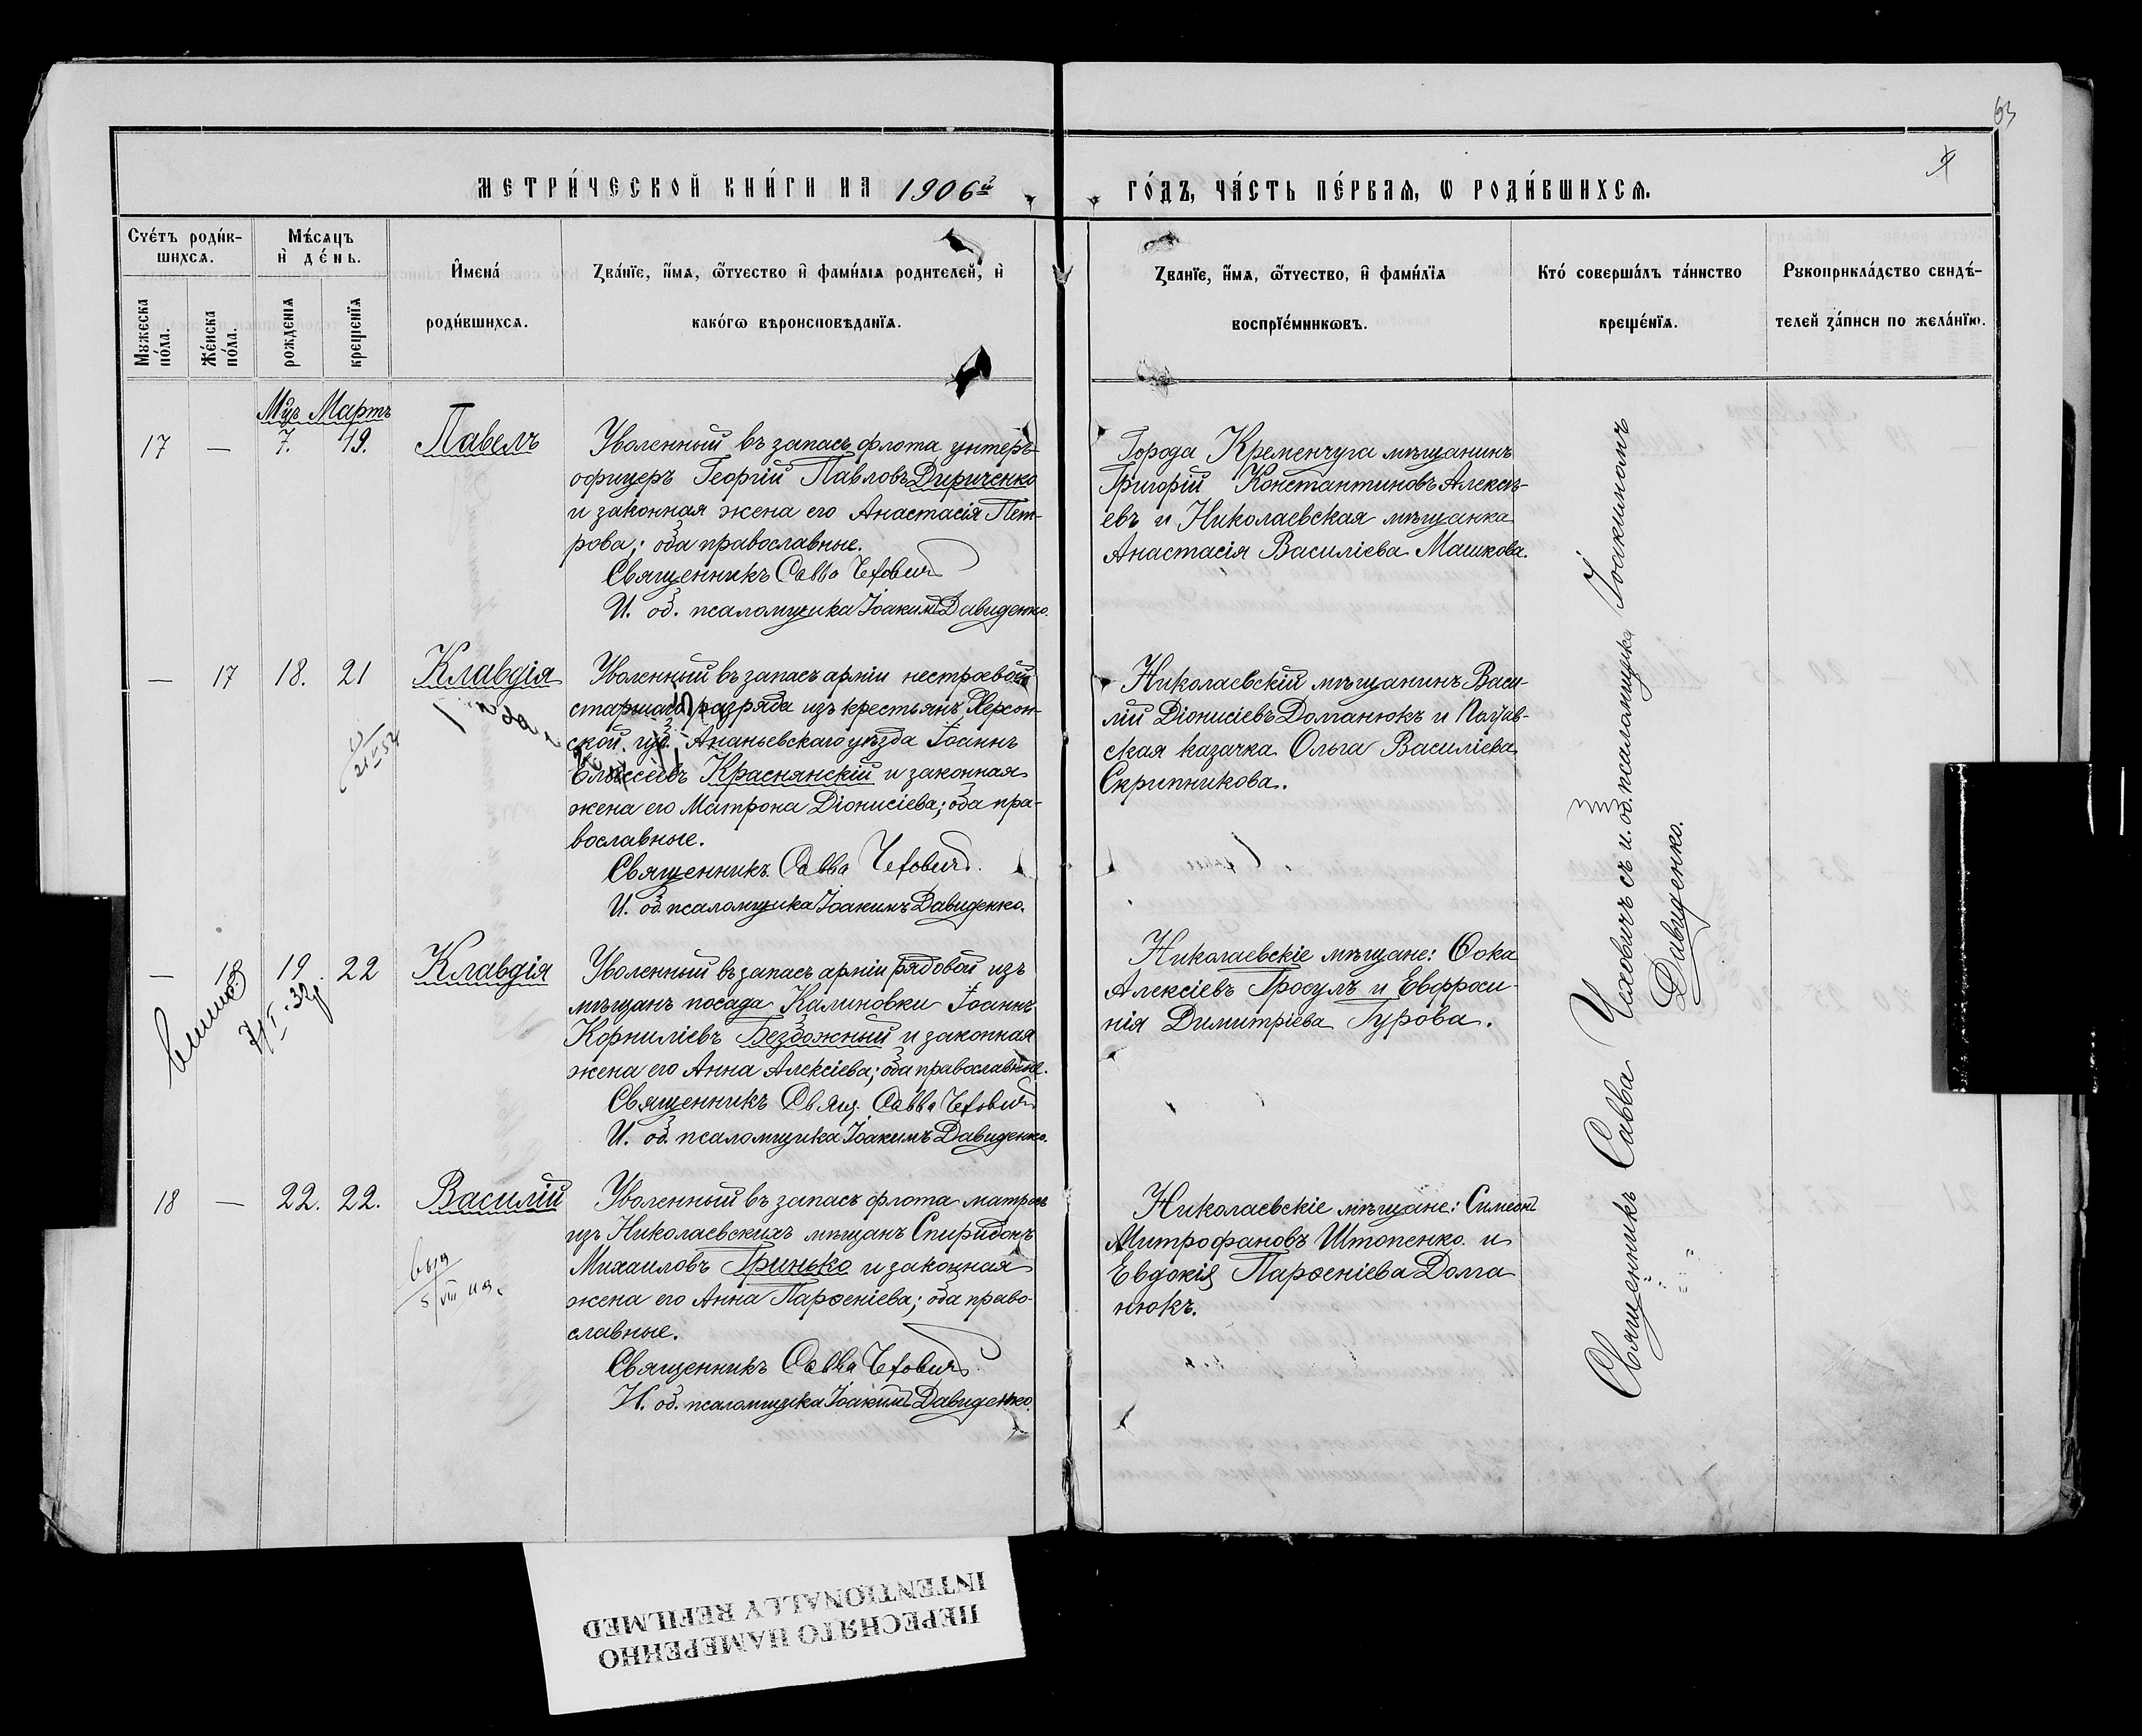 63
9
МЕТРИ́ЧЕСКОЙ КНИ́ГИ НА 1906й ГО́ДЪ, ЧА́СТЬ ПЕ́РВАЯ, Ѡ РОДИ́ВШИХСЯ.
Сче́тъ роди́в-
шихся.
Мужеска по́ла.
Же́нска по́ла.
Мѣ́сяцъ
и де́нь.
рожденія
крещенія
Имена́
роди́вшихся.
Зва́нїе, и́мя, ѻ́тчество и фамилїя родителей, и
како́гѡ вѣроисповѣданїя.
Званїе, и́мя, ѻ́тчество, и фами́лїя
воспрїе́мникѡвъ.
Кто́ соверша́лъ та́инство
креще́нїя.
Рукоприкла́дство свидѣ́-
телей за́писи по жела́нїю.
Мцъ Мартъ
17 — 7. 19. Павелъ
Уволенный въ запасъ флота унтеръ-
офицеръ Георгій Павловъ Дириченко
и законная жена его Анастасія Пет-
рова; оба православные.
Священникъ Савва Чехович
И. об. псаломщика Іоакимъ Давиденко.
Города Кременчуга мѣщанинъ
Григорій Константиновъ Алексѣ-
евъ и Николаевская мѣщанка
Анастасія Василіева Машкова.
— 17 18. 21 Клавдія
Уволенный въ запасъ арміи нестроевой
старшаго разряда изъ крестьянъ Херсон-
ской губ. Ананьевскаго уѣзда Іоаннъ
Елиссеевъ Краснянскій и законная
жена его Матрона Діонисіева; оба пра-
вославные.
Священникъ Савва Чехович
И. об. псаломщика Іоакимъ Давиденко.
Николаевскій мѣщанинъ Васи-
лій Діонисіевъ Долганюкъ и Полтав-
ская казачка Ольга Василіева
Скрипникова.
— 18 19. 22 Клавдія
Уволенный въ запасъ арміи рядовой изъ
мѣщанъ посада Калиновки Іоаннъ
Корниліевъ Безбожный и законная
жена его Анна Алексіева; оба православные.
Священникъ Свящ. Савва Чехович
И. об. псаломщика Іоакимъ Давиденко.
Николаевскіе мѣщане: Фока
Алексіевъ Гросулъ и Евфроси-
нія Димитріева Гурова.
18 — 22. 22. Василій
Уволенный въ запасъ флота матросъ
изъ Николаевскихъ мѣщанъ Спиридонъ
Михаиловъ Гринько и законная
жена его Анна Парѳеніева; оба право-
славные.
Священникъ Савва Чехович
И. об. псаломщика Іоакимъ Давиденко.
Николаевскіе мѣщане: Симеонъ
Митрофановъ Штопенко и
Евдокія Парѳеніева Долга
нюкъ.
Священникъ Савва Чеховичъ съ и. об. псаломщика Іоакимомъ
Давиденко.
ПЕРЕСНЯТО НАМЕРЕННО
INTENTIONALLY REFILMED